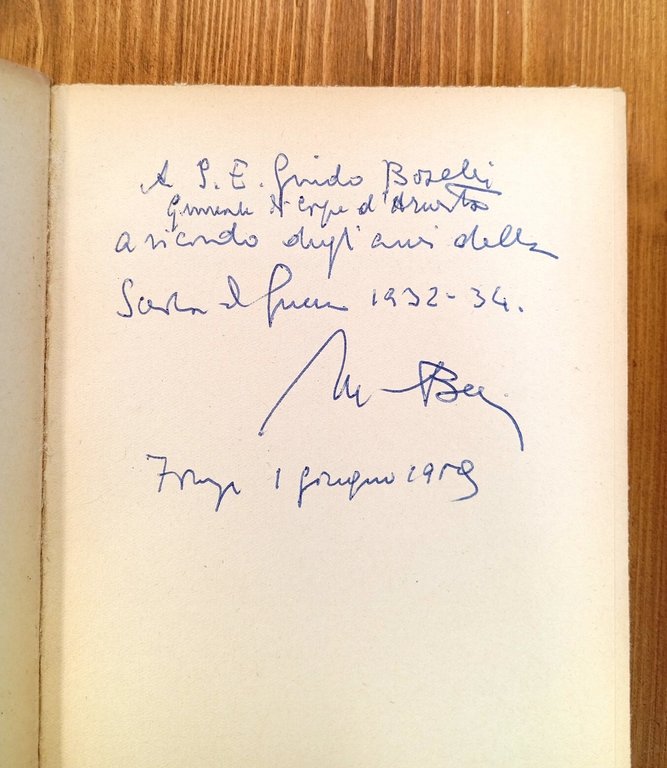 A S. E. Guido Boselli
Generale di Corpo d'Armata
a ricordo degli anni della
Scuola di Guerra 1932-34.
1 giugno 1959